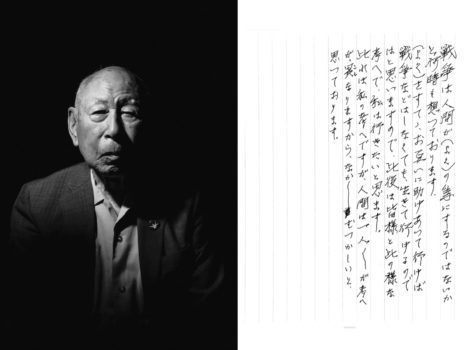 戦争は人間が(よく)の為にするのではないか
と何時も想っております。
(よく)をすてて、お互いに助けあって行けば
戦争などはしなくても生きて行けるので
はと思いますので、此後は皆様と此の様な
考へで、私は行きたいと思います。
此れは私の考へですが、人間は一人〱が考へ
が異なりますから、なか〱むつかしいと、
思っております。